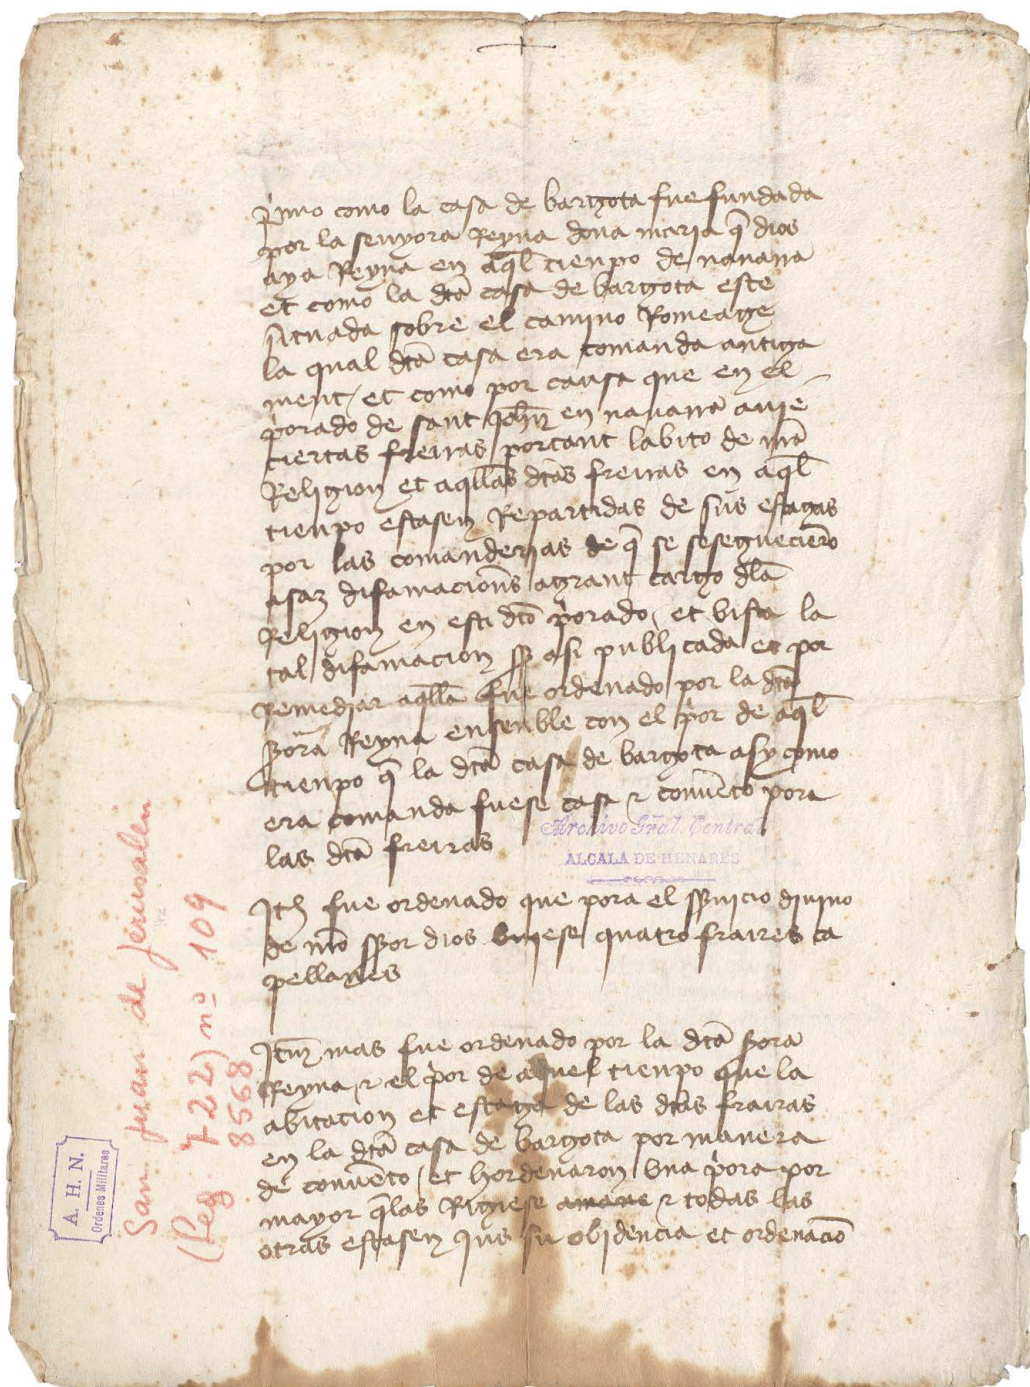 p̉imo como la casa de bargota fue fundada
por la senyora Reyna dona maria q̄ dios
aya Reyna en aq̄l tienpo de nauarra
et como la dc̄ta casa de bargota este
situada sobre el camino Romeage
la qual dc̄ta casa era comanda antiga
ment, et como por causa que en el
p̉orado de sant Joh̄n en nauarra auie
ciertas freiras portant labito de nr̄a
Religion et aq̄llas dc̄tas freiras en aq̄l
tienpo estasen Repartidas de sus estagas
por las comanderias de q̄ se seseguecierō
asaz difamacion̄s agrant cargo dl̄a
Religion en esti dc̄to p̉orado, et vista la
tal difamacion asi publicada et por
Remediar aq̄lla fue ordenado por la dc̄ta
sȳora Reyna ensenble con el p̉or de aq̄l
tienpo q̄ la dc̄ta casa de bargota asy como
era comanda fuese casa z conuēto pora
las dc̄ta freiras
Archivo Gr̄al. Central
ALCALÁ DE HENARES
Itē fue ordenado que pora el seruicio diuino
de nr̄o sȳor dios vuiese quatro fraires ca
pellanes
Itm̄ mas fue ordenado por la dc̄ta sȳora
Reyna, z el p̉or de aquel tienpo que la
abitacion et estaga de las dc̄tas frairas
en la dc̄ta casa de bargota por manera
de conuēto, et hordenaron vna p̉ora por
mayor q̄las Rigiese z todas las
otras estasen jus su obidencia et ordenaciō
San Juan de Jerusalen
(Leg. 722) nº 109
8568
A. H. N.
Ordenes Militares